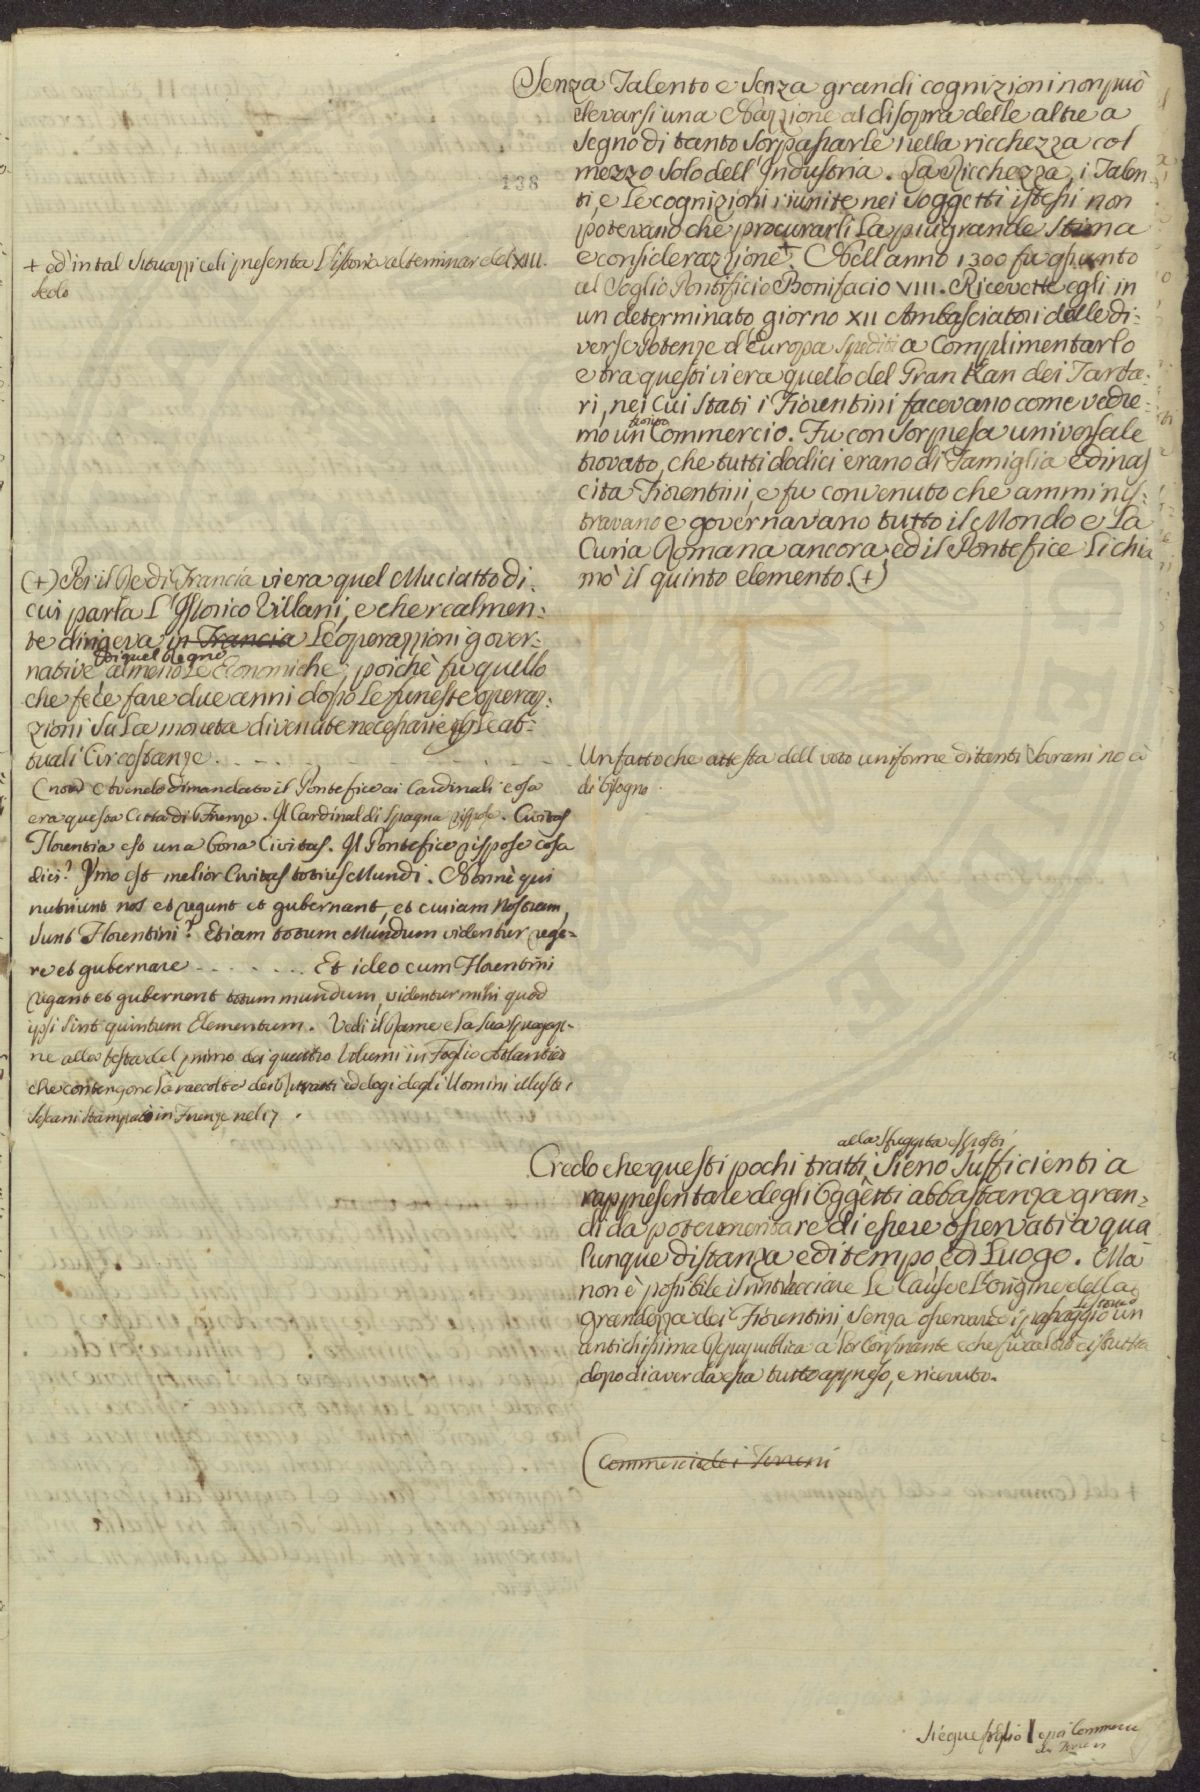 Senza Talento e Senza grandi cognizioni non può
elevarsi una Nazzione al disopra delle altre a
Segno di tanto Sorpassarle nella ricchezza col
mezzo Solo dell'Industria. La Ricchezza, i Talen-
ti, e Le cognizioni riunite nei Soggetti istessi non
potevano che procurarli La piu grande Stima
e considerazzione +. Nell'anno 1300 fu assunto
al Soglio Pontificio Bonifacio VIII. Ricevette egli in
un determinato giorno XII Ambasciatori delle di-
verse Potenze d'Europa Spediti a Complimentarlo
e tra questi vi era quello del Gran Kan dei Tarta-
ri, nei Cui Stati i Fiorentini facevano come vedre-
mo un Commercio. Fu con Sorpresa universale
trovato, che tutti dodici erano di Famiglia e di nas
cita Fiorentini, e fu convenuto che amminis-
travano e governavano tutto il Mondo e La
Curia Romana ancora; ed il Pontefice Li chia
mò il quinto elemento. (+)
138
+ ed in tal Situazzi celi presenta L'istoria al terminar del XIII.
Secolo
(+) Per il Re di Francia vi era quel Muciatto di
cui parla L'Istorico Villani, e che realmen-
te dirigeva in Francia Le operazzioni gover-
di quel Regno
native almeno Le Economiche, poichè fu quello
che fece fare due anni dopo Le funeste operaz-
zioni Su La moneta divenute necessarie Le at-
tuali Circostanze . - . - . -
(nota) Avendo dimandato il Pontefice ai Cardinali cosa
era questa Città di Firenze. Il Cardinal di Spagna rispose. Civitas
Florentia est una bona Civitas. Il Pontefice rispose cosa
dici? Ymo est melior Civitas totius Mundi. Nonnè qui
nutriunt nos et regunt et gubernant, et curiam Nostram,
Sunt Florentini? Etiam totum Mundum videntur rege-
re et gubernare - - . - - . . . Et ideo cum Florentini
regant et gubernent totum mundum, videntur mihi quod
ipsi Sint quintum Elementum. Vedi il Rame e La Sua Spiegazio-
ne alla testa del primo dei quattro Volumi in Foglio Atlantico
che contengono La raccolta dei Ritratti ed elogi degli Uomini illustri
Toscani Stampato in Firenze nel 17 .
Un fatto che attesta dell voto uniforme di tanti Sovrani no à
di bisogno
alla sfuggita esposti
Credo che questi pochi tratti Sieno Sufficienti a
rappresentare degli Oggètti abbastanza gran-
di da poter meritare di essere osservati a qua
lunque distanza e di tempo, e di Luogo. Mà
non è possibile il rintracciare Le Cause e L'origine della
grandezza dei Fiorentini, Senza osservare di passaggio un
antichissima Repubblica a Lor Confinante e che fu distrutta
dopo di aver da essa tutto appreso, e ricevuto.
(Commercio dei Terreni
Siegue foglio 1 e poi Commercio